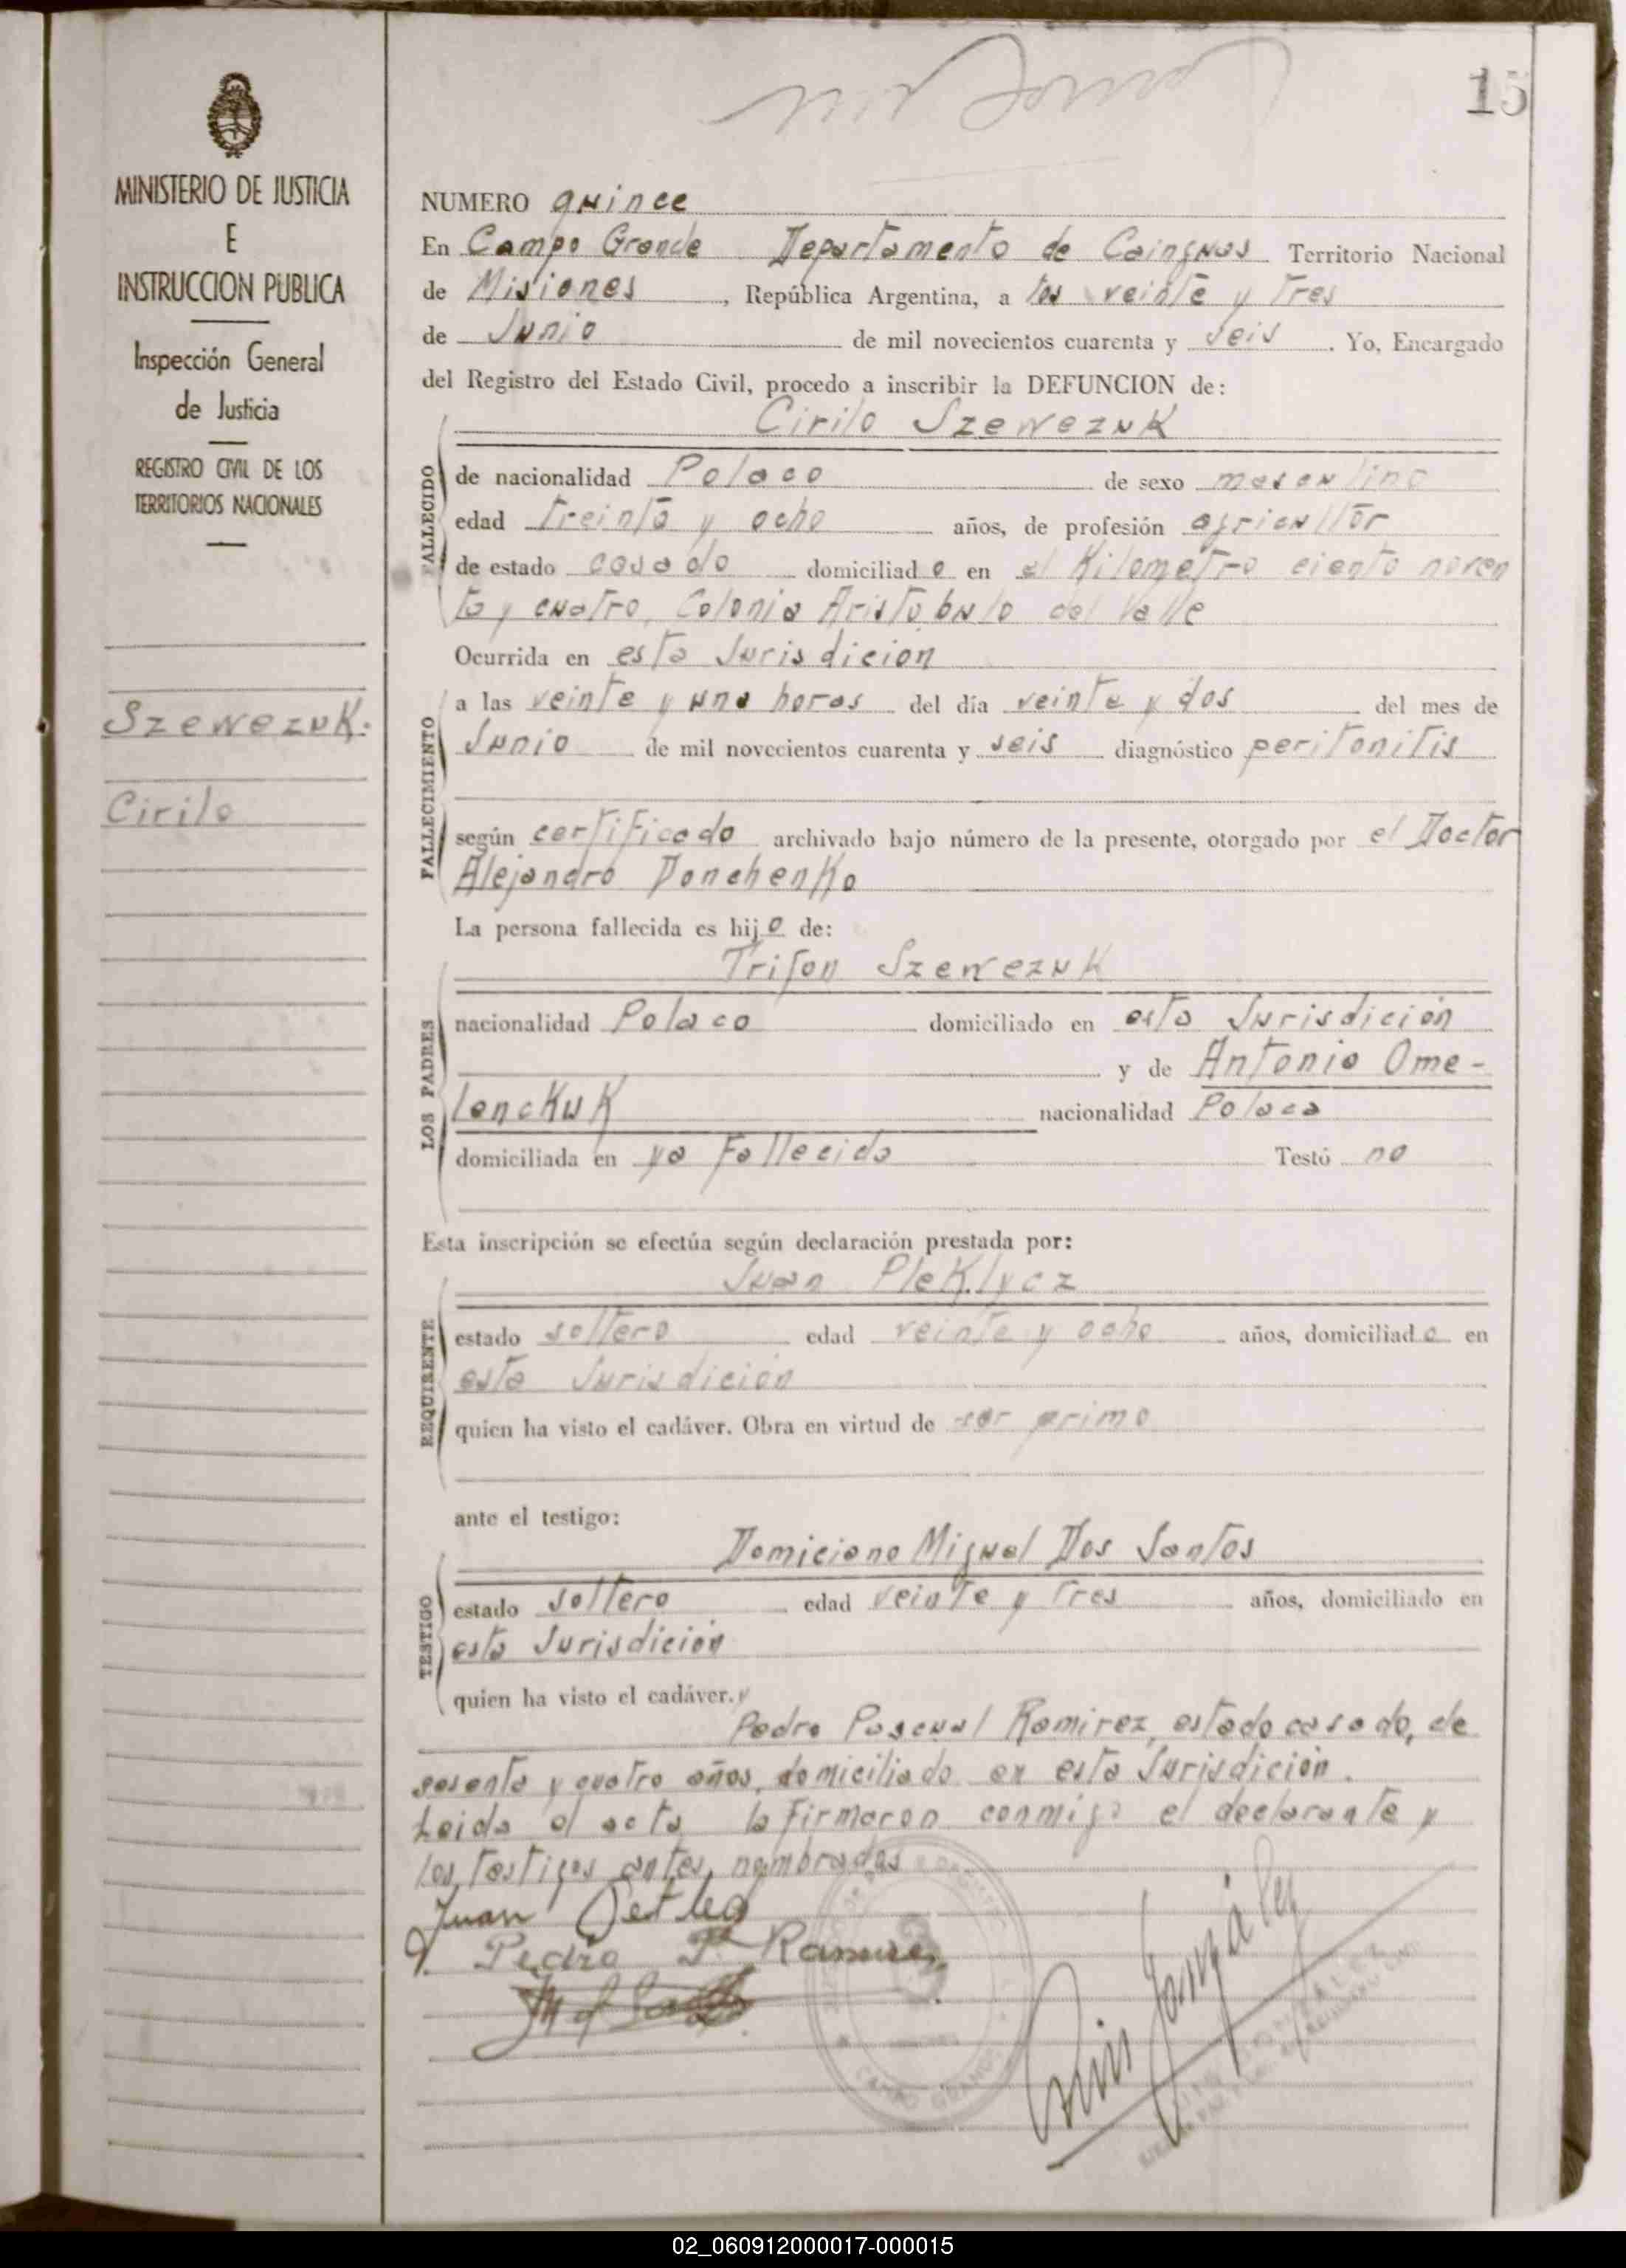 15
MINISTERIO DE JUSTICIA
E
INSTRUCCION PUBLICA
Inspección General
de Justicia
REGISTRO CIVIL DE LOS
TERRITORIOS NACIONALES
Szewezuk.
Cirilo
NUMERO quince
En Campo Grande Departamento de Cainguas Territorio Nacional
de Misiones, República Argentina, a los veinte y tres
de Junio de mil novecientos cuarenta y seis. Yo, Encargado
del Registro del Estado Civil, procedo a inscribir la DEFUNCION de:
Cirilo Szewezuk
FALLECIDO
de nacionalidad Polaco de sexo masculino
edad treinta y ocho años, de profesión agricultor
de estado casado domiciliado en el Kilometro ciento noven
ta y cuatro, Colonia Aristobulo del Valle
Ocurrida en esta Jurisdicion
FALLECIMIENTO
a las veinte y una horas del día veinte y dos del mes de
Junio de mil novecientos cuarenta y seis diagnóstico peritonitis
según certificado archivado bajo número de la presente, otorgado por el Doctor
Alejandro Donchenko
La persona fallecida es hijo de:
Trifon Szewezuk
LOS PADRES
nacionalidad Polaco domiciliado en esta Jurisdición
y de Antonia Ome-
lanckuk nacionalidad Polaca
domiciliada en ya Fallecida Testó no
Esta inscripción se efectúa según declaración prestada por:
Juan Pleklycz
REQUIRENTE
estado soltero edad veinte y ocho años, domiciliado en
esta Jurisdición
quien ha visto el cadáver. Obra en virtud de ser primo
ante el testigo:
Domiciano Miguel Dos Santos
TESTIGO
estado soltero edad veinte y tres años, domiciliado en
esta Jurisdición
quien ha visto el cadáver. y
Pedro Pascual Ramirez, estado casado, de
sesenta y cuatro años, domiciliado en esta Jurisdición.
Leida el acta, la Firmaron conmigo el declarante y
los testigos antes nombrados
Juan
Pedro P. Ramirez
Luis González
CAMPO GRANDE
02_060912000017-000015